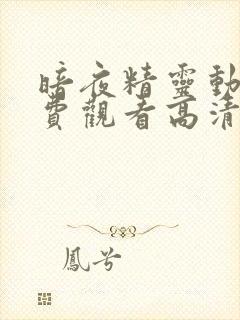 暗夜精靈動
費觀看高清
鳳兮